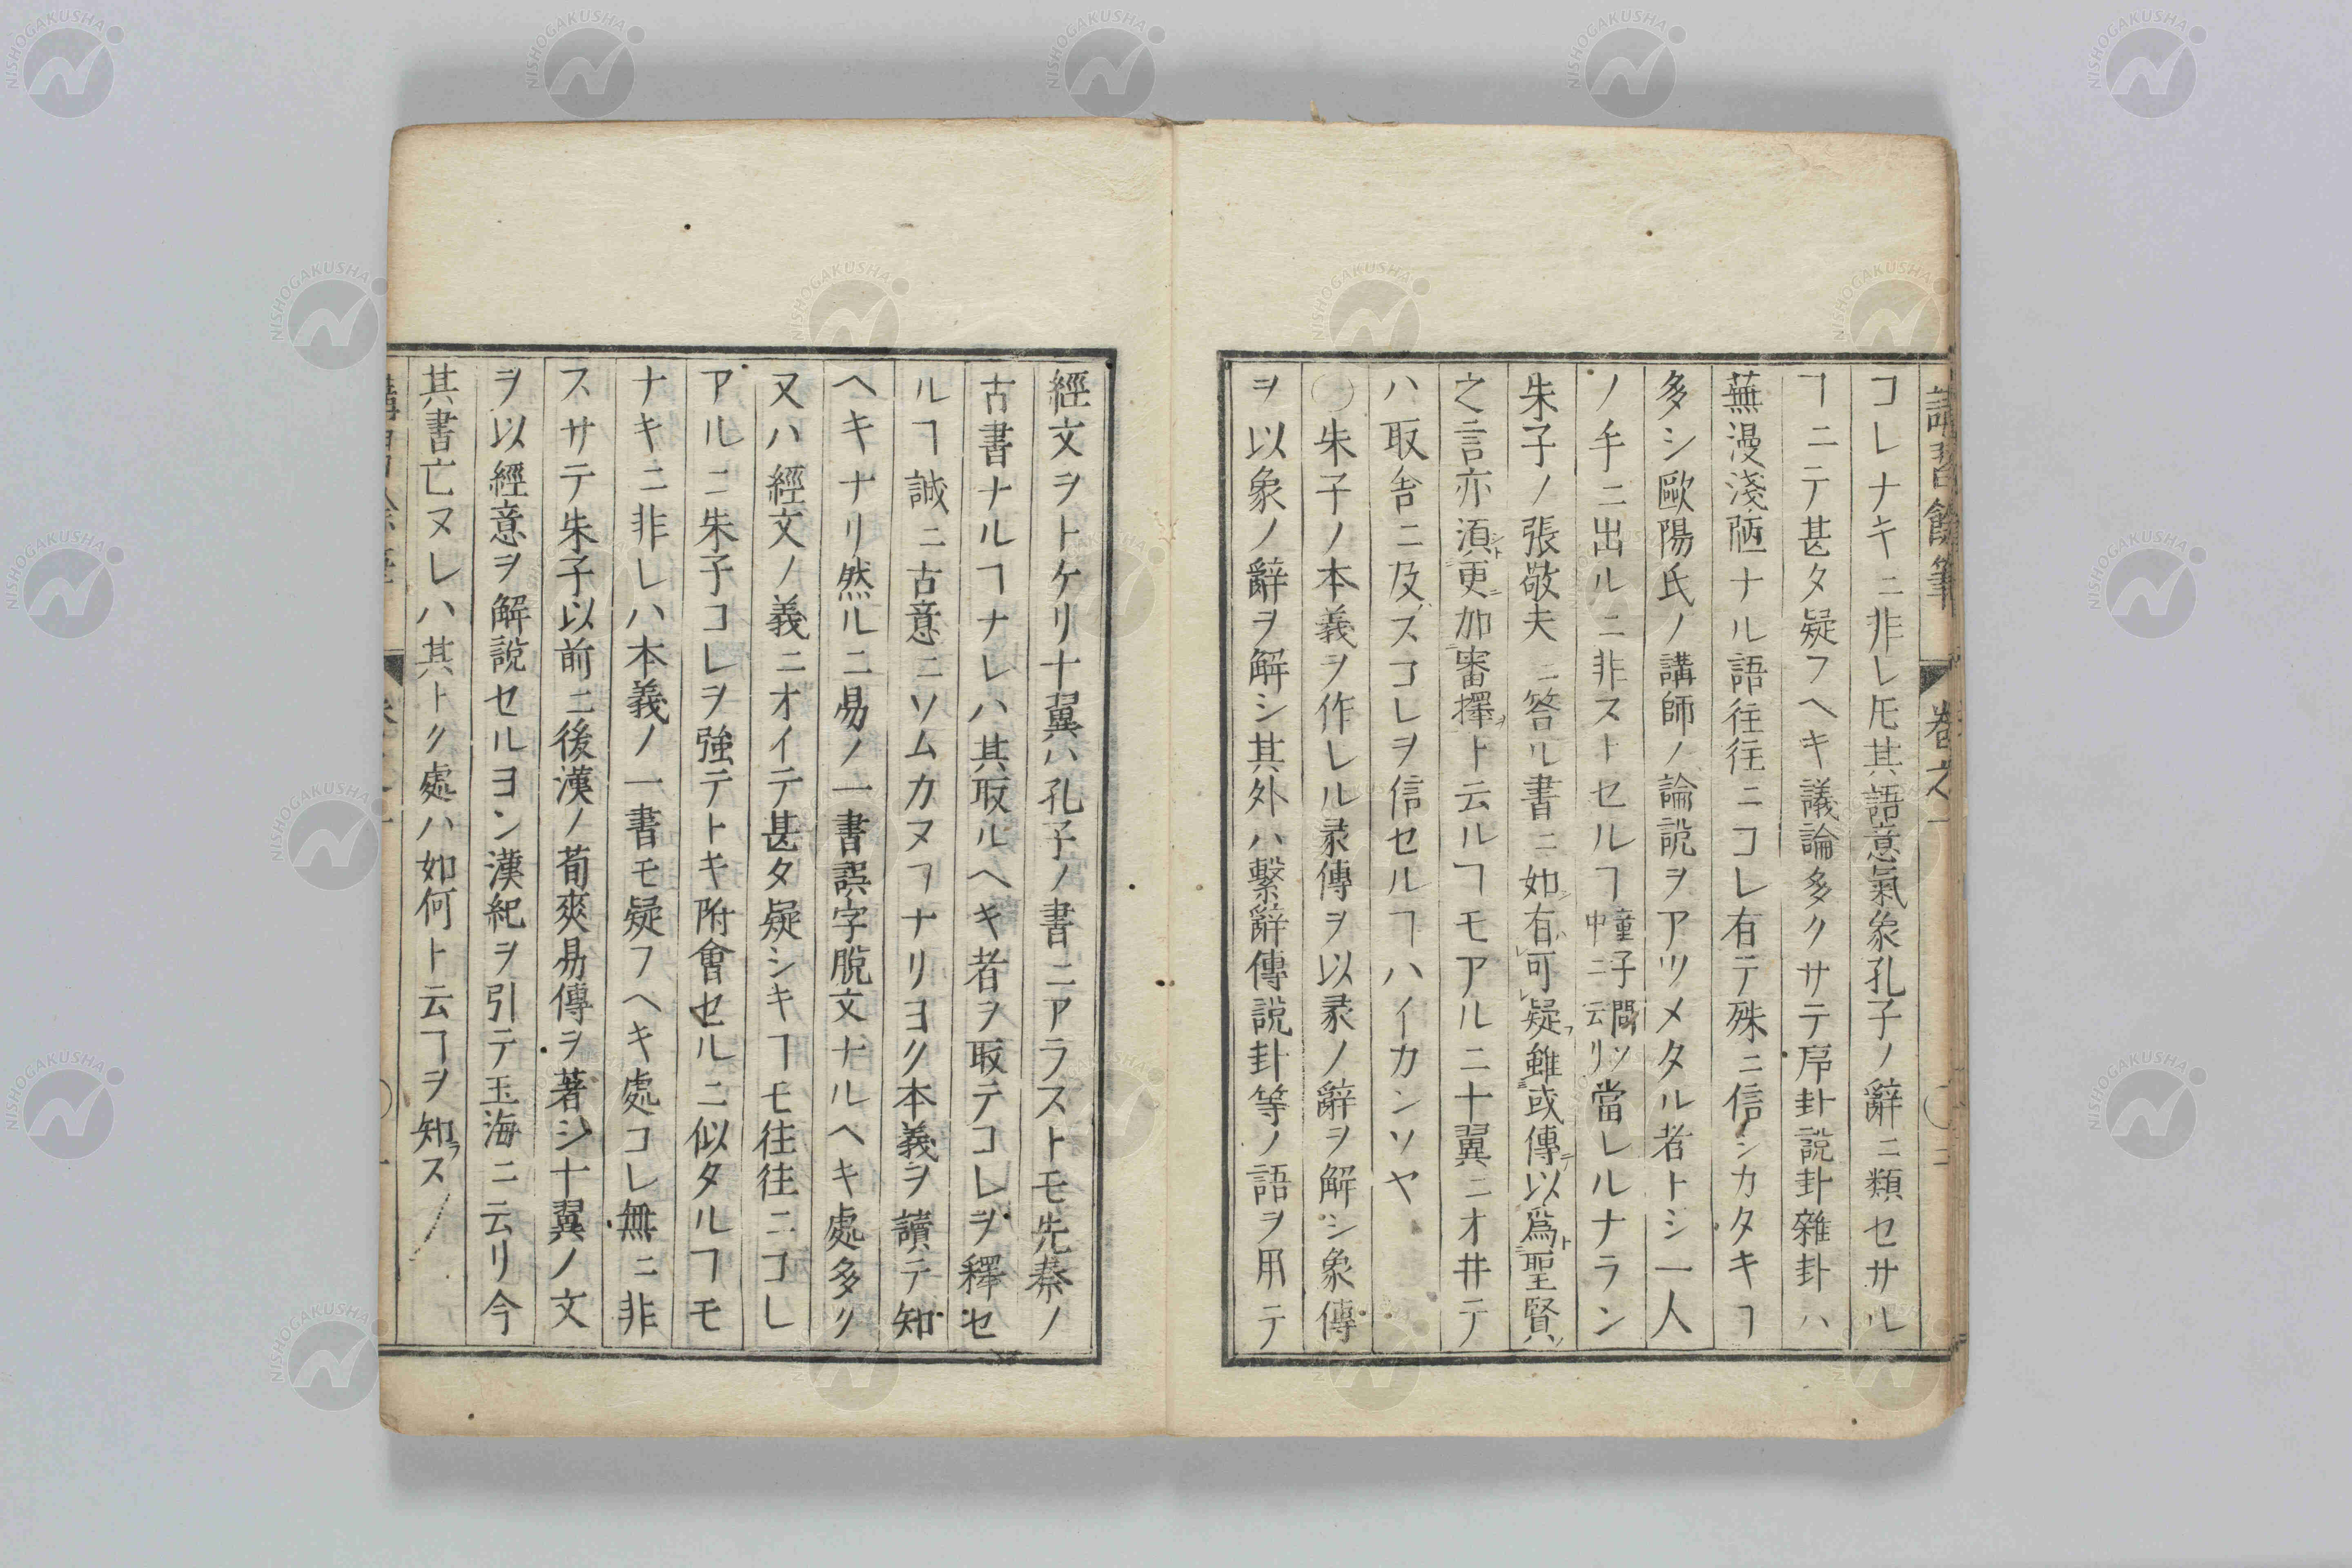 講習餘筆 卷之一 〇三
コレナキニ非レ𪜈其語意氣象孔子ノ辭ニ類セサル
ヿニテ甚タ疑フヘキ議論多クサテ序卦說卦雜卦ハ
蕪漫淺陋ナル語往往ニコレ有テ殊ニ信シカタキヿ
多シ歐陽氏ノ講師ノ論說ヲアツメタル者トシ一人
ノ手ニ出ルニ非ストセルヿ童子問中ニ云リ當レルナラン
朱子ノ張敬夫ニ答ル書ニ如有可疑雖或傳以爲聖賢
之言亦須更加審擇ト云ルヿモアルニ十翼ニオ井テ
ハ取舍ニ及ズコレヲ信セルヿハイカンソヤ
〇朱子ノ本義ヲ作レル彖傳ヲ以彖ノ辭ヲ解シ象傳
ヲ以象ノ辭ヲ解シ其外ハ繫辭傳說卦等ノ語ヲ用テ
經文ヲトケリ十翼ハ孔子ノ書ニアラストモ先秦ノ
古書ナルヿナレハ其取ルヘキ者ヲ取テコレヲ釋セ
ルヿ誠ニ古意ニソムカヌヿナリヨク本義ヲ讀テ知
ヘキナリ然ルニ易ノ一書誤字脫文ナルヘキ處多ク
又ハ經文ノ義ニオイテ甚タ疑シキヿモ往往ニコレ
アルニ朱子コレヲ強テトキ附會セルニ似タルヿモ
ナキニ非レハ本義ノ一書モ疑フヘキ處コレ無ニ非
スサテ朱子以前ニ後漢ノ荀爽易傳ヲ著シ十翼ノ文
ヲ以經意ヲ解說セルヨシ漢紀ヲ引テ玉海ニ云リ今
其書亡ヌレハ其トク處ハ如何ト云ヿヲ知ラス
NISHOGAKUSHA